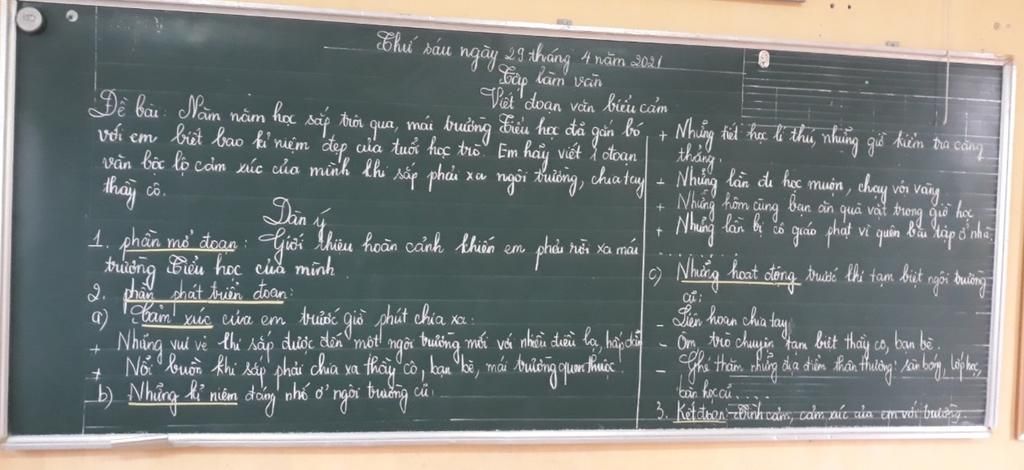 Thứ sáu ngày 23 tháng 4 năm 2021
Tập làm văn
Viết đoạn văn biểu cảm
Đề bài: Năm năm học sắp trôi qua, mái trường Tiểu học đã gắn bó
với em biết bao kỉ niệm đẹp của tuổi học trò. Em hãy viết 1 đoạn
văn bộc lộ cảm xúc của mình khi sắp phải xa ngôi trường, chia tay
thầy cô.
Dàn ý
1. phần mở đoạn: Giới thiệu hoàn cảnh khiến em phải rời xa mái
trường Tiểu học của mình
2. phần phát triển đoạn:
a) Cảm xúc của em trước giờ phút chia xa:
+ Những vui vẻ khi sắp được đến một ngôi trường mới với nhiều điều lạ, hấp dẫn
+ Nỗi buồn khi sắp phải chia xa thầy cô, bạn bè, mái trường quen thuộc.
b) Những kỉ niệm đáng nhớ ở ngôi trường cũ:
+ Những tiết học lí thú, những giờ kiểm tra căng
thẳng.
+ Những lần đi học muộn, chạy vội vàng
+ Những hôm cùng bạn ăn quà vặt trong giờ học
+ Những lần bị cô giáo phạt vì quên bài tập ở nhà
......
c) Những hoạt động trước khi tạm biệt ngôi trường
cũ:
- Liên hoan chia tay
- Ôm, trò chuyện tạm biệt thầy cô, bạn bè.
- Ghé thăm những địa điểm thân thương: sân bóng, lớp học,
bàn học cũ.....
3. Kết đoạn: Tình cảm, cảm xúc của em với trường.